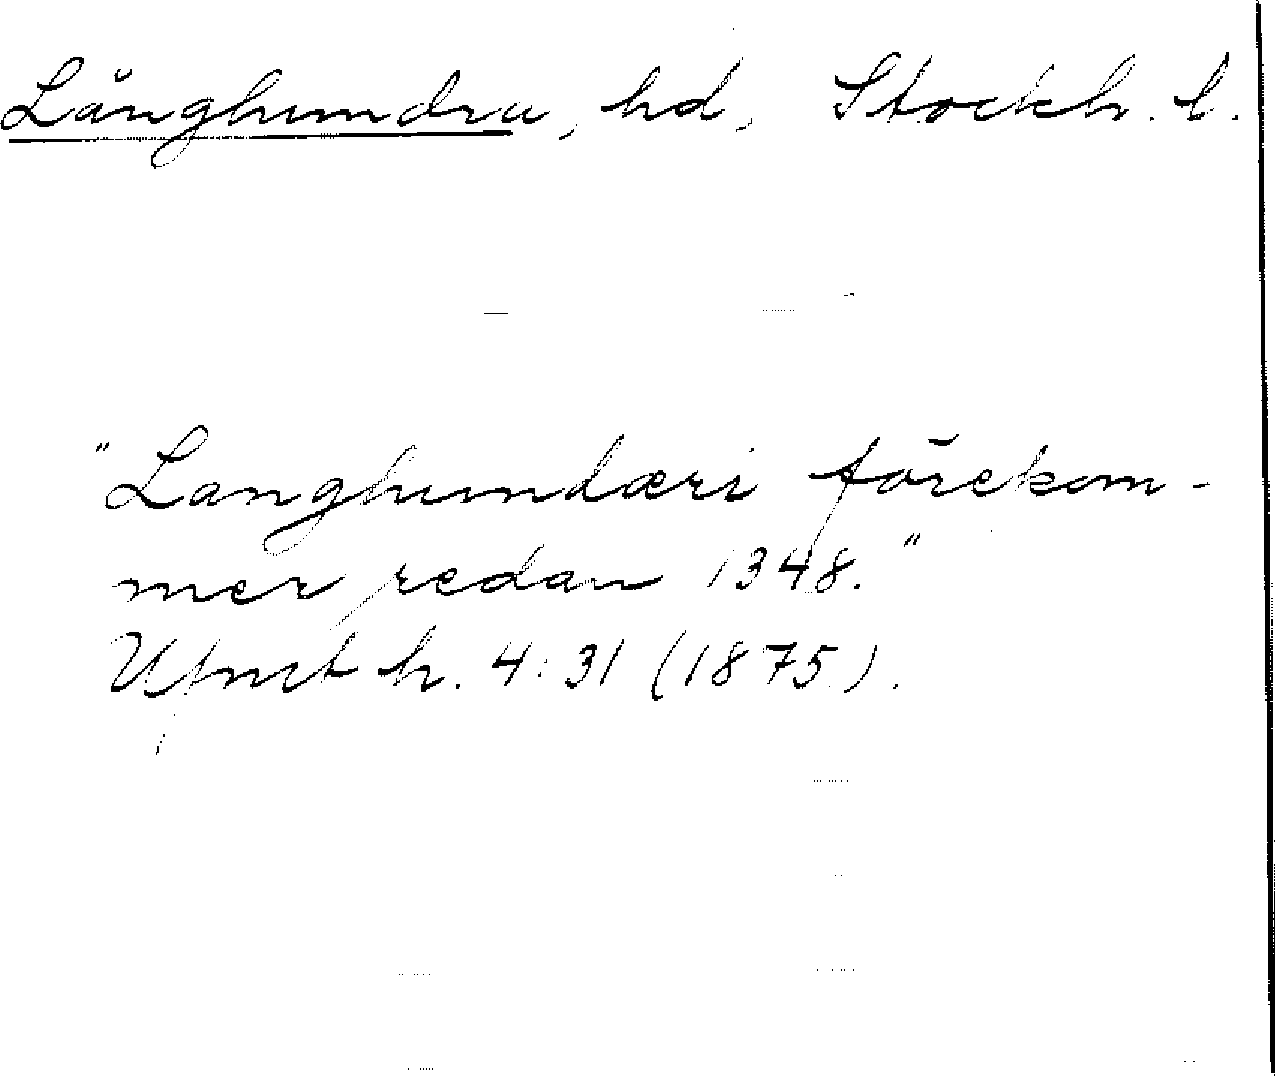 Långhundra, hd, Stockh. l.
"Langhundæri förekom-
mer redan 1348."
Ufmt h. 4:31 (1875).